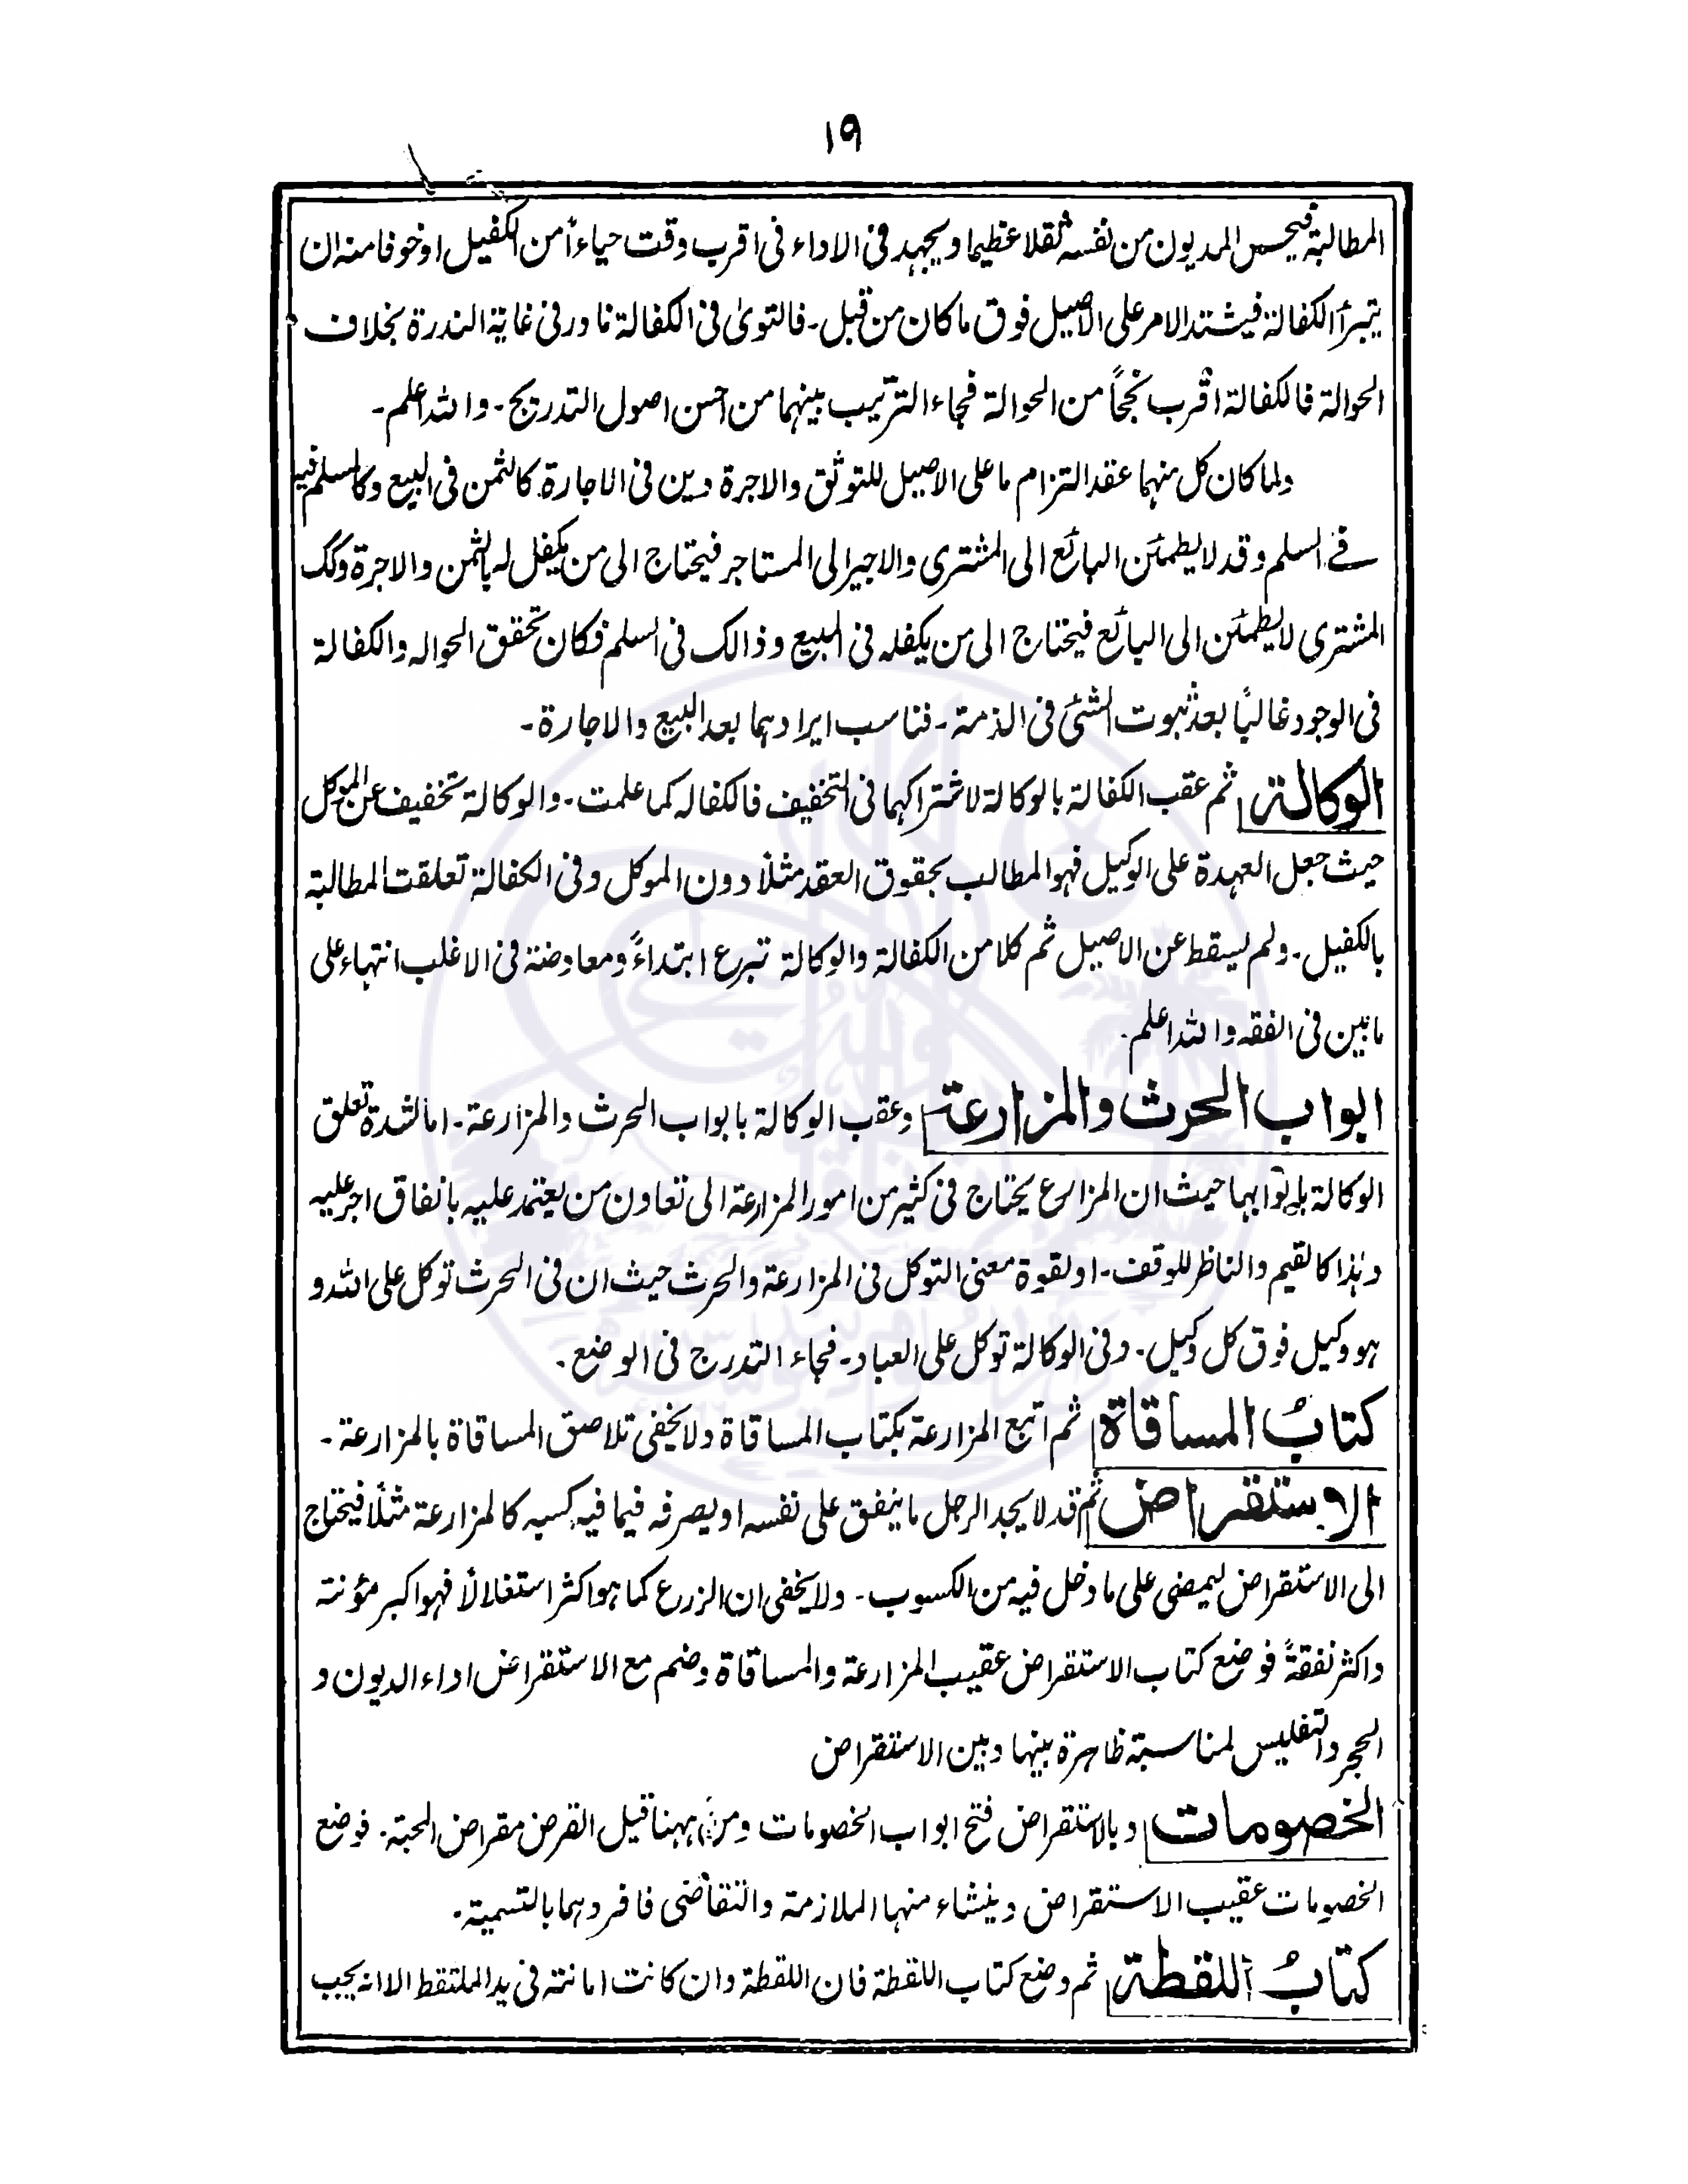 ١٩
المطالبة فيحس المديون من نفسه ثقلا عظيما ويجهد فى الاداء فى اقرب وقت حياءً من الكفيل او خوفا منه ان
يتبرأ الكفالة فيشتد الامر على الاصيل فوق ما كان من قبل۔ فالتوىٰ فى الكفالة نادر فى غاية الندرة بخلاف
الحوالة فالكفالة اقرب نجحًا من الحوالة فجاء الترتيب بينهما من احسن اصول التدريج۔ والله اعلم۔
ولما كان كل منهما عقد التزام ما على الاصيل للتوثق والاجرة دين فى الاجارة كالثمن فى البيع وكالمسلم فيه
فے السلم وقد لا يطمئن البائع الى المشترى والاجير الى المستاجر فيحتاج الى من يكفل له بالثمن والاجرة وكك
المشترى لا يطمئن الى البائع فيحتاج الى من يكفله فى المبيع وذالك فى السلم فكان تحقق الحواله والكفالة
فى الوجود غالبًا بعد ثبوت الشئ فى الذمة۔ فناسب ايرادهما بعد البيع والاجارة۔
الوكالة ثم عقب الكفالة بالوكالة لاشتراكهما فى التخفيف فالكفاله كما علمت۔ والوكالة تخفيف عن الموكل
حيث جعل العهدة على الوكيل فهو المطالب بحقوق العقد مثلاً دون الموكل وفى الكفالة تعلقت المطالبة
بالكفيل۔ ولم يسقط عن الاصيل ثم كلا من الكفالة والوكالة تبرع ابتداءً ومعاوضة فى الاغلب انتهاء على
ما بين فى الفقه والله اعلم۔
ابواب الحرث والمزارعة وعقب الوكالة بابواب الحرث والمزارعة۔ اما لشدة تعلق
الوكالة بابوابها حيث ان المزارع يحتاج فى كثير من امور المزارعة الى تعاون من يعتمد عليه بانفاق اجر عليه
وهذا كالقيم والناظر للوقف۔ او لقوة معنى التوكل فى المزارعة والحرث حيث ان فى الحرث توكل على الله و
هو وكيل فوق كل وكيل۔ وفى الوكالة توكل على العباد۔ فجاء التدرج فى الوضع۔
كتابُ المساقاة ثم اتبع المزارعة بكتاب المساقاة ولا يخفى تلاصق المساقاة بالمزارعة۔
الاستقراض ثم قد لا يجد الرجل ما ينفق على نفسه او يصرفه فيما فيه كسبه كالمزارعة مثلًا فيحتاج
الى الاستقراض ليمضى على ما دخل فيه من الكسوب۔ ولا يخفى ان الزرع كما هو اكثر استغلالًا فهو اكبر مؤنته
واكثر نفقةً فوضع كتاب الاستقراض عقيب المزارعة والمساقاة وضم مع الاستقراض اداء الديون و
الحجر والتفليس لمناسبة ظاهرة بينها وبين الاستقراض
الخصومات وبالاستقراض فتح ابواب الخصومات ومن ههنا قيل القرض مقراض المحبة۔ فوضع
الخصومات عقيب الاستقراض وينشاء منها الملازمة والتقاضى فافردهما بالتسمية۔
كتابُ اللقطة ثم وضع كتاب اللقطة فان اللقطة وان كانت امانته فى يد الملتقط الا انه يجب